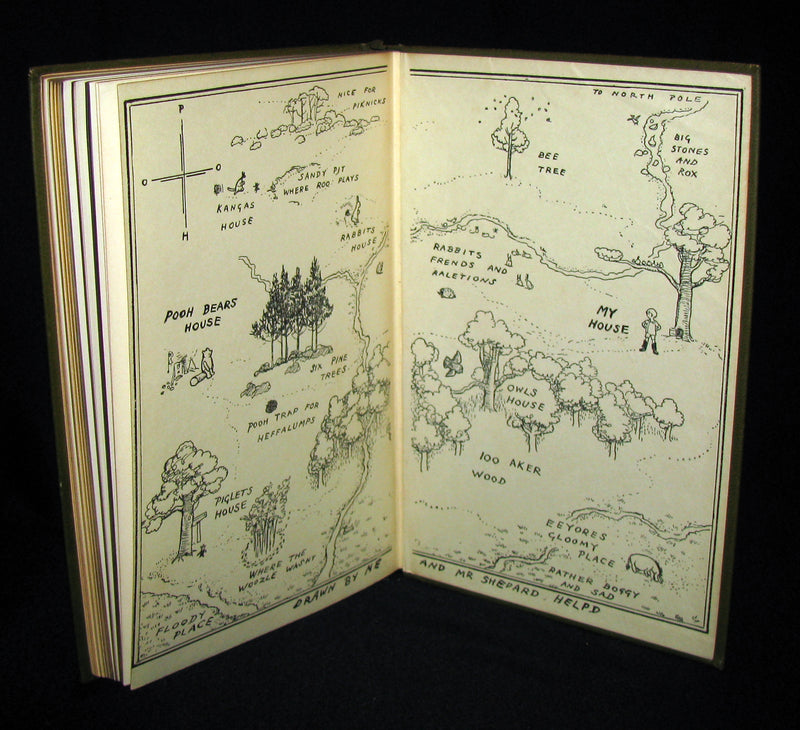 P
O
O
H
NICE FOR
PIKNICKS
SANDY PIT
WHERE ROO PLAYS
KANGAS
HOUSE
RABBITS
HOUSE
POOH BEARS
HOUSE
SIX PINE
TREES
POOH TRAP FOR
HEFFALUMPS
PIGLETS
HOUSE
WHERE THE
WOOZLE WASNT
FLOODY
PLACE
DRAWN BY ME
TO NORTH POLE
BIG
STONES
AND
ROX
BEE
TREE
RABBITS
FRENDS AND
RALETIONS
MY
HOUSE
OWLS
HOUSE
100 AKER
WOOD
EEYORES
GLOOMY
PLACE
RATHER BOGGY
AND SAD
AND MR SHEPARD HELPD